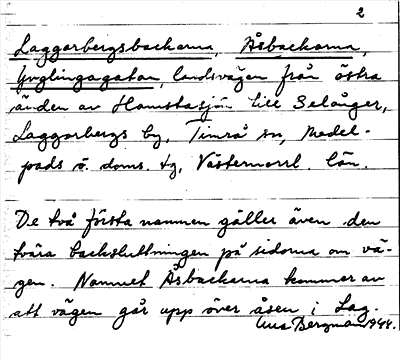 2
Laggarbergsbackarna, Åsbackarna,
Ynglingagatan, landsvägen från östra
änden av Hamstasjön till Selånger,
Laggarbergs by, Timrå sn, Medel-
pads ö. doms. tg, Västernorrl. län.
De två första namnen gäller även den
tvära backsluttningen på sidorna om vä-
gen. Namnet Åsbackarna kommer av
att vägen går upp över åsen i Lag-
Bergman 1944.